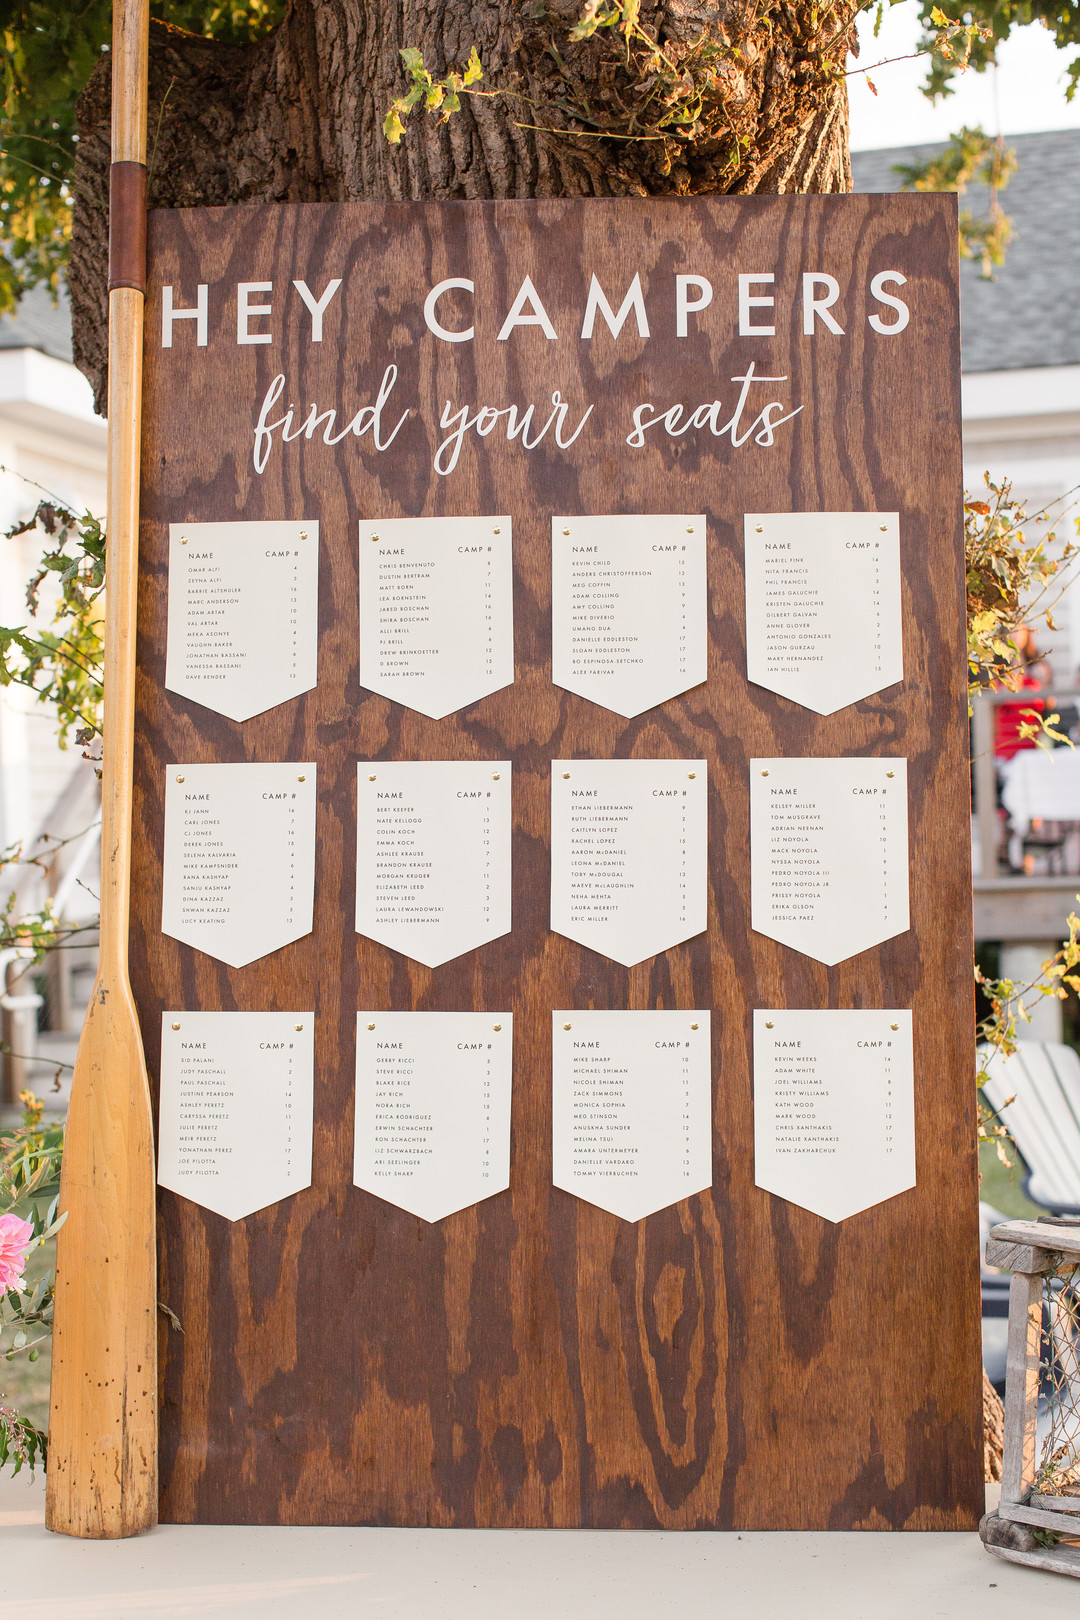 HEY CAMPERS
find your seats
NAME CAMP #
OMAR ALFI 4
ZEYNA ALFI 5
BARRIE ALTSHULER 16
MARC ANDERSON 13
ADAM ARTAR 10
VAL ARTAR 10
MEKA ASONYE 4
VAUGHN BAKER 9
JONATHAN BASSANI 6
VANESSA BASSANI 5
DAVE BENDER 13
NAME CAMP #
CHRIS BENVENUTO 8
DUSTIN BERTRAM 7
MATT BORN 11
LEA BORNSTEIN 14
JARED BOSCHAN 16
SHIRA BOSCHAN 16
ALLI BRILL 6
PJ BRILL 6
DREW BRINKOETTER 12
D BROWN 15
SARAH BROWN 15
NAME CAMP #
KEVIN CHILD 15
ANDERS CHRISTOFFERSON 12
MEG COFFIN 13
ADAM COLLING 9
AMY COLLING 9
MIKE DIVERIO 4
UMANG DUA 4
DANIELLE EDDLESTON 17
SLOAN EDDLESTON 17
BO ESPINOSA-SETCHKO 17
ALEX FARIVAR 16
NAME CAMP #
MARIEL FINK 14
NITA FRANCIS 3
PHIL FRANCIS 3
JAMES GALUCHIE 14
KRISTEN GALUCHIE 14
GILBERT GALVAN 6
ANNE GLOVER 2
ANTONIO GONZALES 7
JASON GURZAU 10
MARY HERNANDEZ 1
IAN HILLIS 15
NAME CAMP #
KJ JANN 16
CARL JONES 7
CJ JONES 16
DEREK JONES 15
SELENA KALVARIA 4
MIKE KAMPSNIDER 6
RANA KASHYAP 4
SANJU KASHYAP 4
DINA KAZZAZ 5
SHWAN KAZZAZ 5
LUCY KEATING 13
NAME CAMP #
BERT KEEPER 1
NATE KELLOGG 13
COLIN KOCH 12
EMMA KOCH 12
ASHLEE KRAUSE 7
BRANDON KRAUSE 7
MORGAN KRUGER 11
ELIZABETH LEED 2
STEVEN LEED 3
LAURA LEWANDOWSKI 12
ASHLEY LIEBERMANN 9
NAME CAMP #
ETHAN LIEBERMANN 9
RUTH LIEBERMANN 2
CAITLYN LOPEZ 1
RACHEL LOPEZ 15
AARON McDANIEL 8
LEONA McDANIEL 7
TOBY McDOUGAL 13
MAEVE McLAUGHLIN 14
NEHA MEHTA 5
LAURA MERRITT 5
ERIC MILLER 16
NAME CAMP #
KELSEY MILLER 11
TOM MUSGRAVE 13
ADRIAN NEENAN 6
LIZ NOYOLA 10
MACK NOYOLA 1
NYSSA NOYOLA 9
PEDRO NOYOLA III 9
PEDRO NOYOLA JR 1
PRISSY NOYOLA 1
ERIKA OLSON 4
JESSICA PAEZ 7
NAME CAMP #
SID PALANI 5
JUDY PASCHALL 2
PAUL PASCHALL 2
JUSTINE PEARSON 14
ASHLEY PERETZ 10
CARYSSA PERETZ 11
JULIE PERETZ 1
MEIR PERETZ 2
YONATHAN PEREZ 17
JOE PILOTTA 2
JUDY PILOTTA 2
NAME CAMP #
GERRY RICCI 3
STEVE RICCI 3
BLAKE RICE 13
JAY RICH 15
NORA RICH 15
ERICA RODRIGUEZ 6
ERWIN SCHACHTER 1
RON SCHACHTER 17
LIZ SCHWARZBACH 8
ARI SEELINGER 10
KELLY SHARP 10
NAME CAMP #
MIKE SHARP 10
MICHAEL SHIMAN 11
NICOLE SHIMAN 11
ZACK SIMMONS 5
MONICA SOPHIA 7
MEG STINSON 14
ANUSKHA SUNDER 12
MELINA TSUI 9
AMARA UNTERMEYER 6
DANIELLE VARDARO 13
TOMMY VIERBUCHEN 16
NAME CAMP #
KEVIN WEEKS 14
ADAM WHITE 11
JOEL WILLIAMS 8
KRISTY WILLIAMS 8
KATH WOOD 11
MARK WOOD 12
CHRIS XANTHAKIS 17
NATALIE XANTHAKIS 17
IVAN ZAKHARCHUK 17